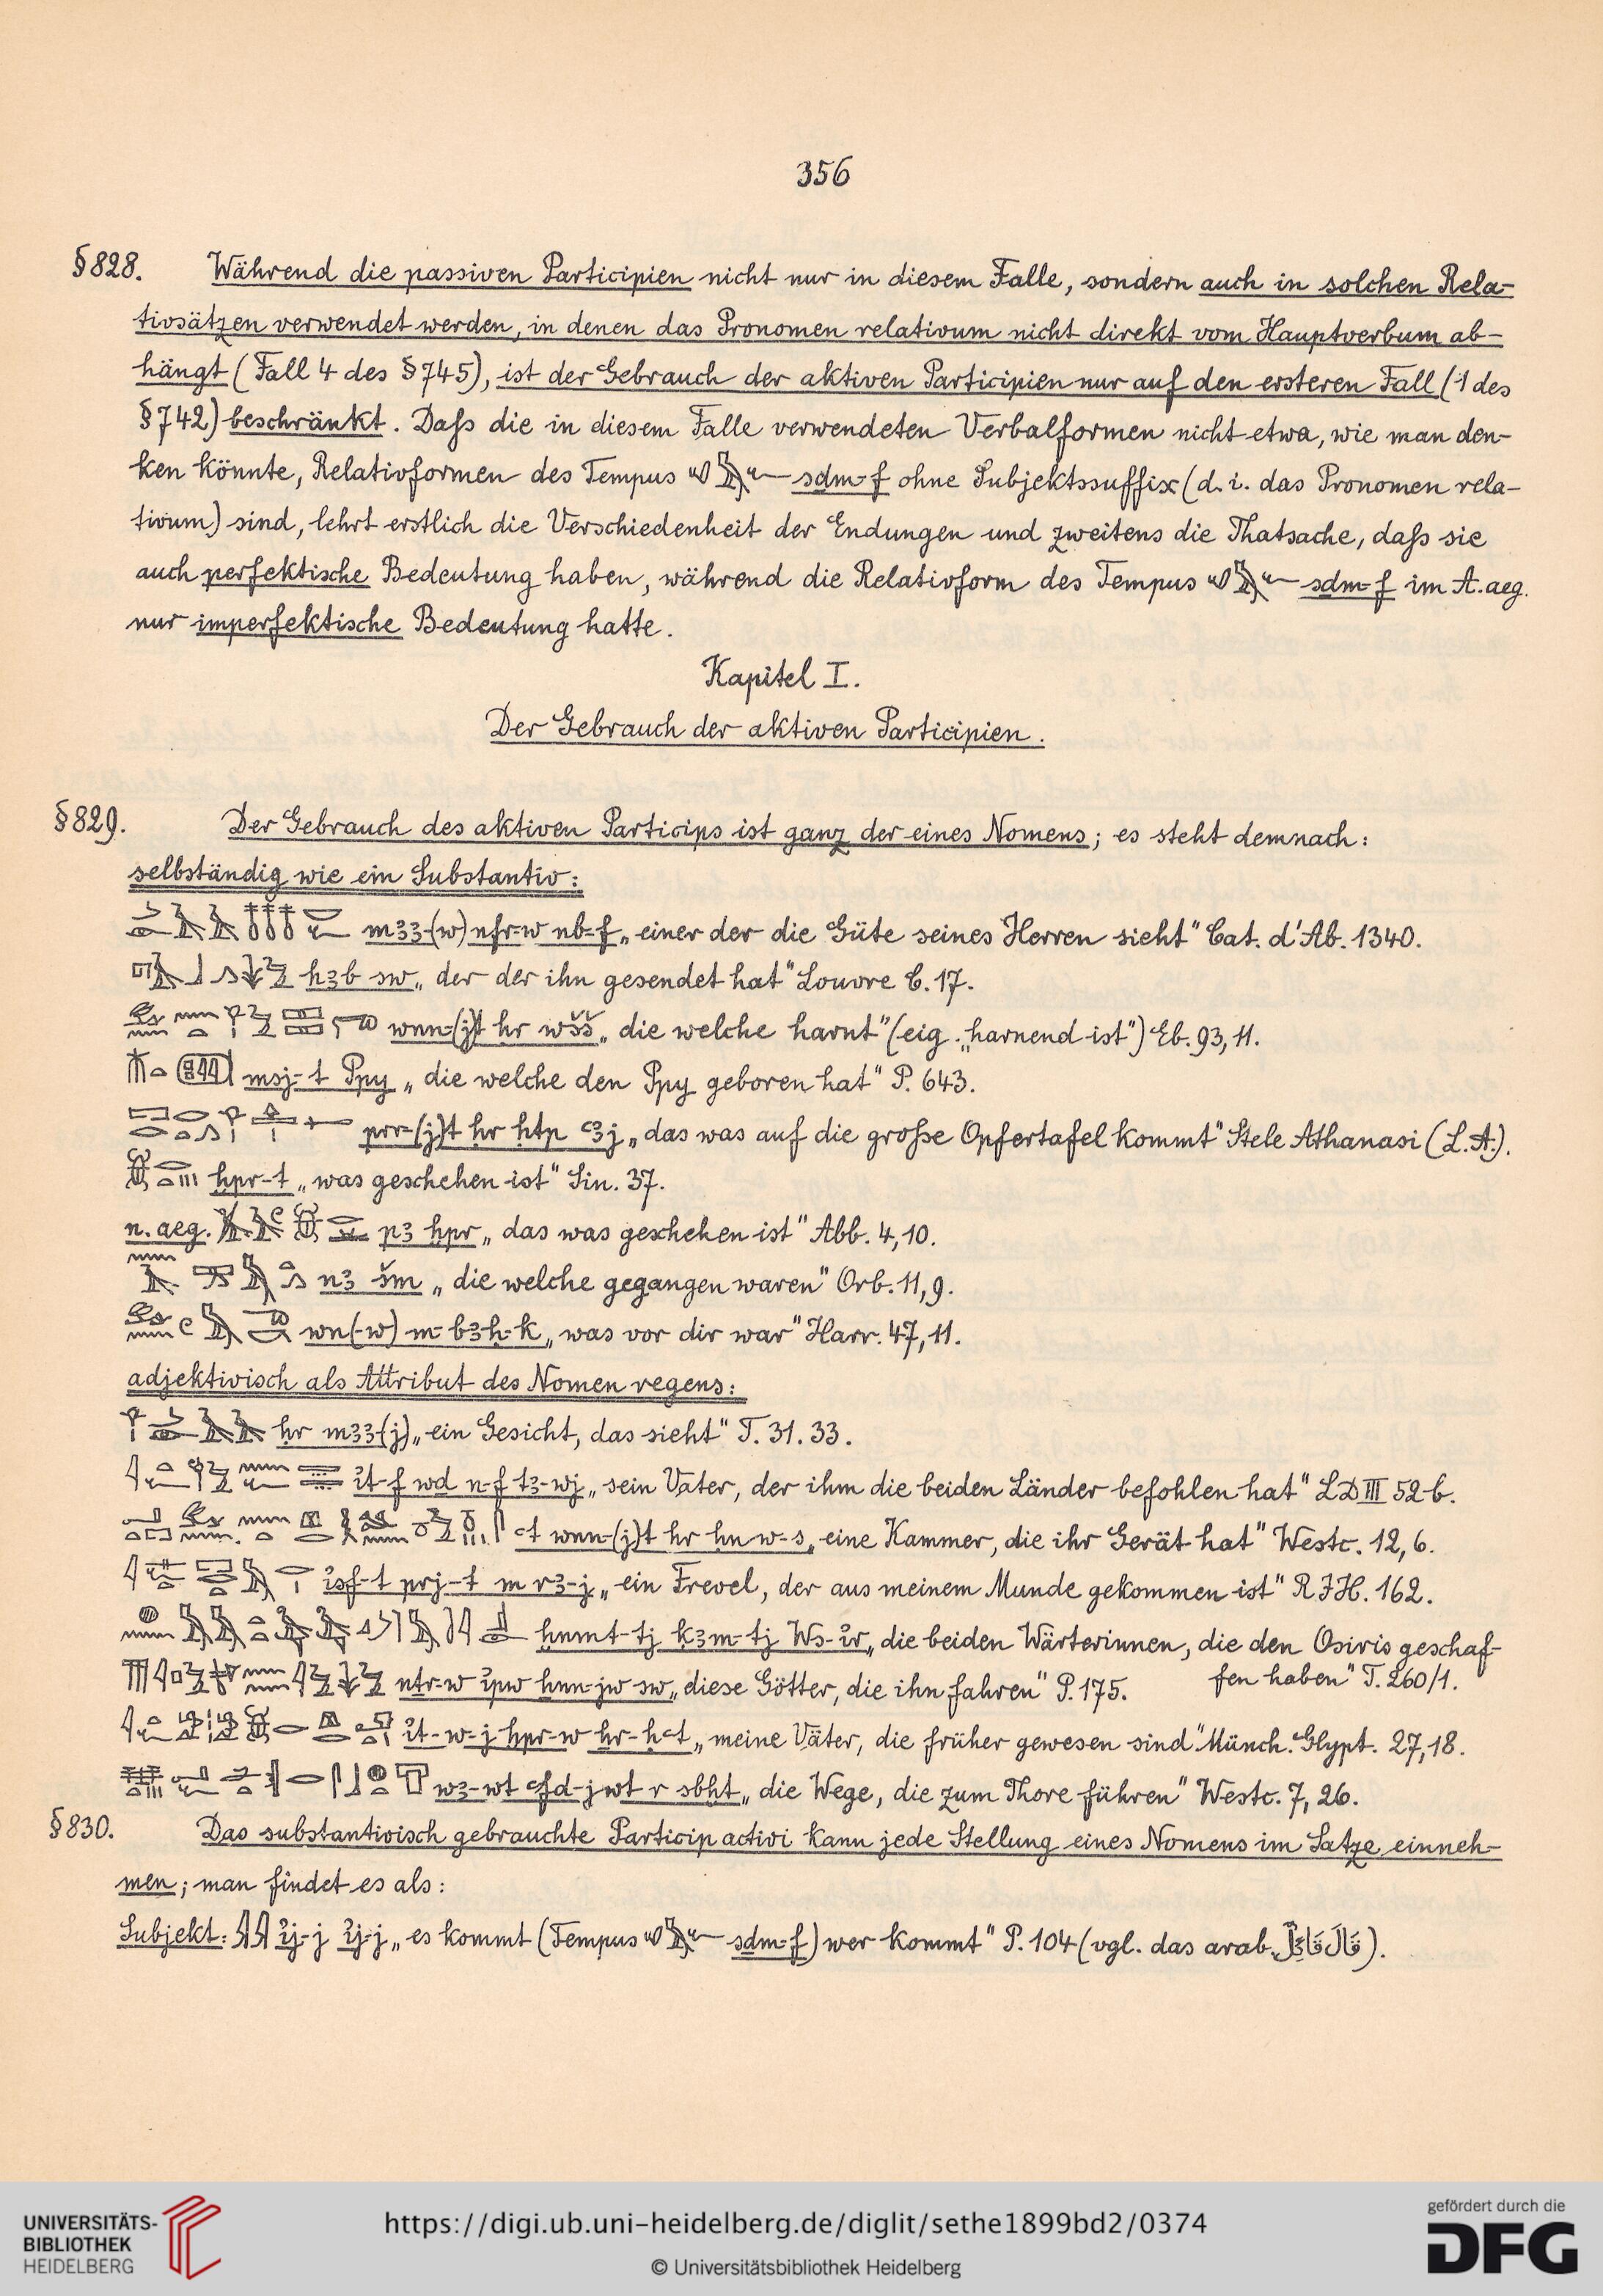 356
§828. Während die passiven Participien nicht nur in diesem Falle, sondern auch in solchen Rela-
tivsätzen verwendet werden, in denen das Pronomen relativum nicht direkt vom Hauptverbum ab-
hängt (Fall 4 des §745), ist der Gebrauch der aktiven Participien nur auf den ersteren Fall (1 des
§742) beschränkt. Daſs die in diesem Falle verwendeten Verbalformen nicht etwa, wie man den-
ken könnte, Relativformen des Tempus sdm-f ohne Subjektssuffix (d. i. das Pronomen rela-
tivum) sind, lehrt erstlich die Verschiedenheit der Endungen und zweitens die Thatsache, daſs sie
auch perfektische Bedeutung haben, während die Relativform des Tempus sdm-f im A. aeg.
nur imperfektische Bedeutung hatte.
Kapitel I.
Der Gebrauch der aktiven Participien.
§829. Der Gebrauch des aktiven Particips ist ganz der eines Nomens; es steht demnach:
selbständig wie ein Substantiv:
mꜣꜣ-(w) nfr-w nb-f „einer der die Güte seines Herren sieht" Cat. d'Ab. 1340.
hꜣb sw „der der ihn gesendet hat" Louvre C. 17.
wnn-(j)t ḥr wšš „die welche harnt" (eig. „harnend ist") Eb. 93, 11.
msj-t Ppy „die welche den Ppy geboren hat" P. 643.
prr-(j)t ḥr ḥtp ꜥꜣj „das was auf die groſse Opfertafel kommt" Stele Athanasi (L. A.).
ḫpr-t „was geschehen ist" Sin. 37.
n. aeg. pꜣ ḫpr „das was geschehen ist" Abb. 4, 10.
nꜣ šm „die welche gegangen waren" Orb. 11, 9.
wn(-w) m-bꜣḥ-k „was vor dir war" Harr. 47, 11.
adjektivisch als Attribut des Nomen regens:
ḥr mꜣꜣ-(j) „ein Gesicht, das sieht" T. 31. 33.
ἰt-f wd n-f tꜣ-wj „sein Vater, der ihm die beiden Länder befohlen hat" LD III 52 b.
ꜥt wnn-(j)t ḥr ḥnw-s „eine Kammer, die ihr Gerät hat" Westc. 12, 6.
ἰsf-t prj-t m rꜣ-j „ein Frevel, der aus meinem Munde gekommen ist" RIH. 162.
ḫnmt-tj kꜣm-tj Ws-ἰr „die beiden Wärterinnen, die den Osiris geschaf-
fen haben" T. 260/1.
ntr-w ἰpw ḫnn-jw sw „diese Götter, die ihn fahren" P. 175.
ἰt-w-j ḫpr-w ḫr-ḥꜣt „meine Väter, die früher gewesen sind" Münch. Glypt. 27, 18.
wꜣ-wt ꜥfd-jwt r sbḫt „die Wege, die zum Thore führen" Westc. 7, 26.
§830. Das substantivisch gebrauchte Particip activi kann jede Stellung eines Nomens im Satze einneh-
men; man findet es als:
Subjekt: ἰj-j ἰj-j „es kommt (Tempus sdm-f) wer kommt" P. 104 (vgl. das arab. قَالَ قَائِلٌ).
UNIVERSITÄTS-
BIBLIOTHEK
HEIDELBERG
https://digi.ub.uni-heidelberg.de/diglit/sethe1899bd2/0374
© Universitätsbibliothek Heidelberg
gefördert durch die
DFG